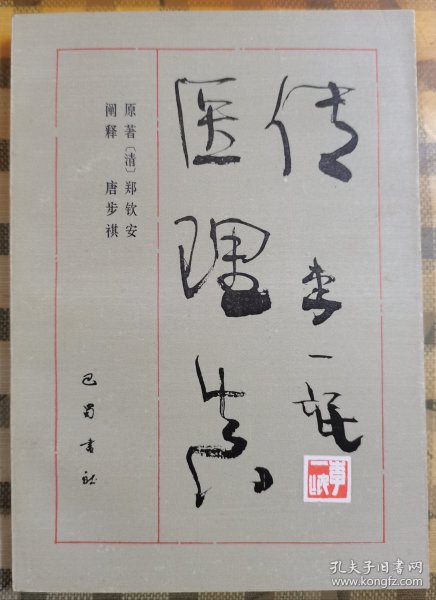 医理真
传
李一氓
李一氓
原著〔清〕郑钦安
阐释 唐步祺
巴蜀书社
孔夫子旧书网
book.kongfz.com